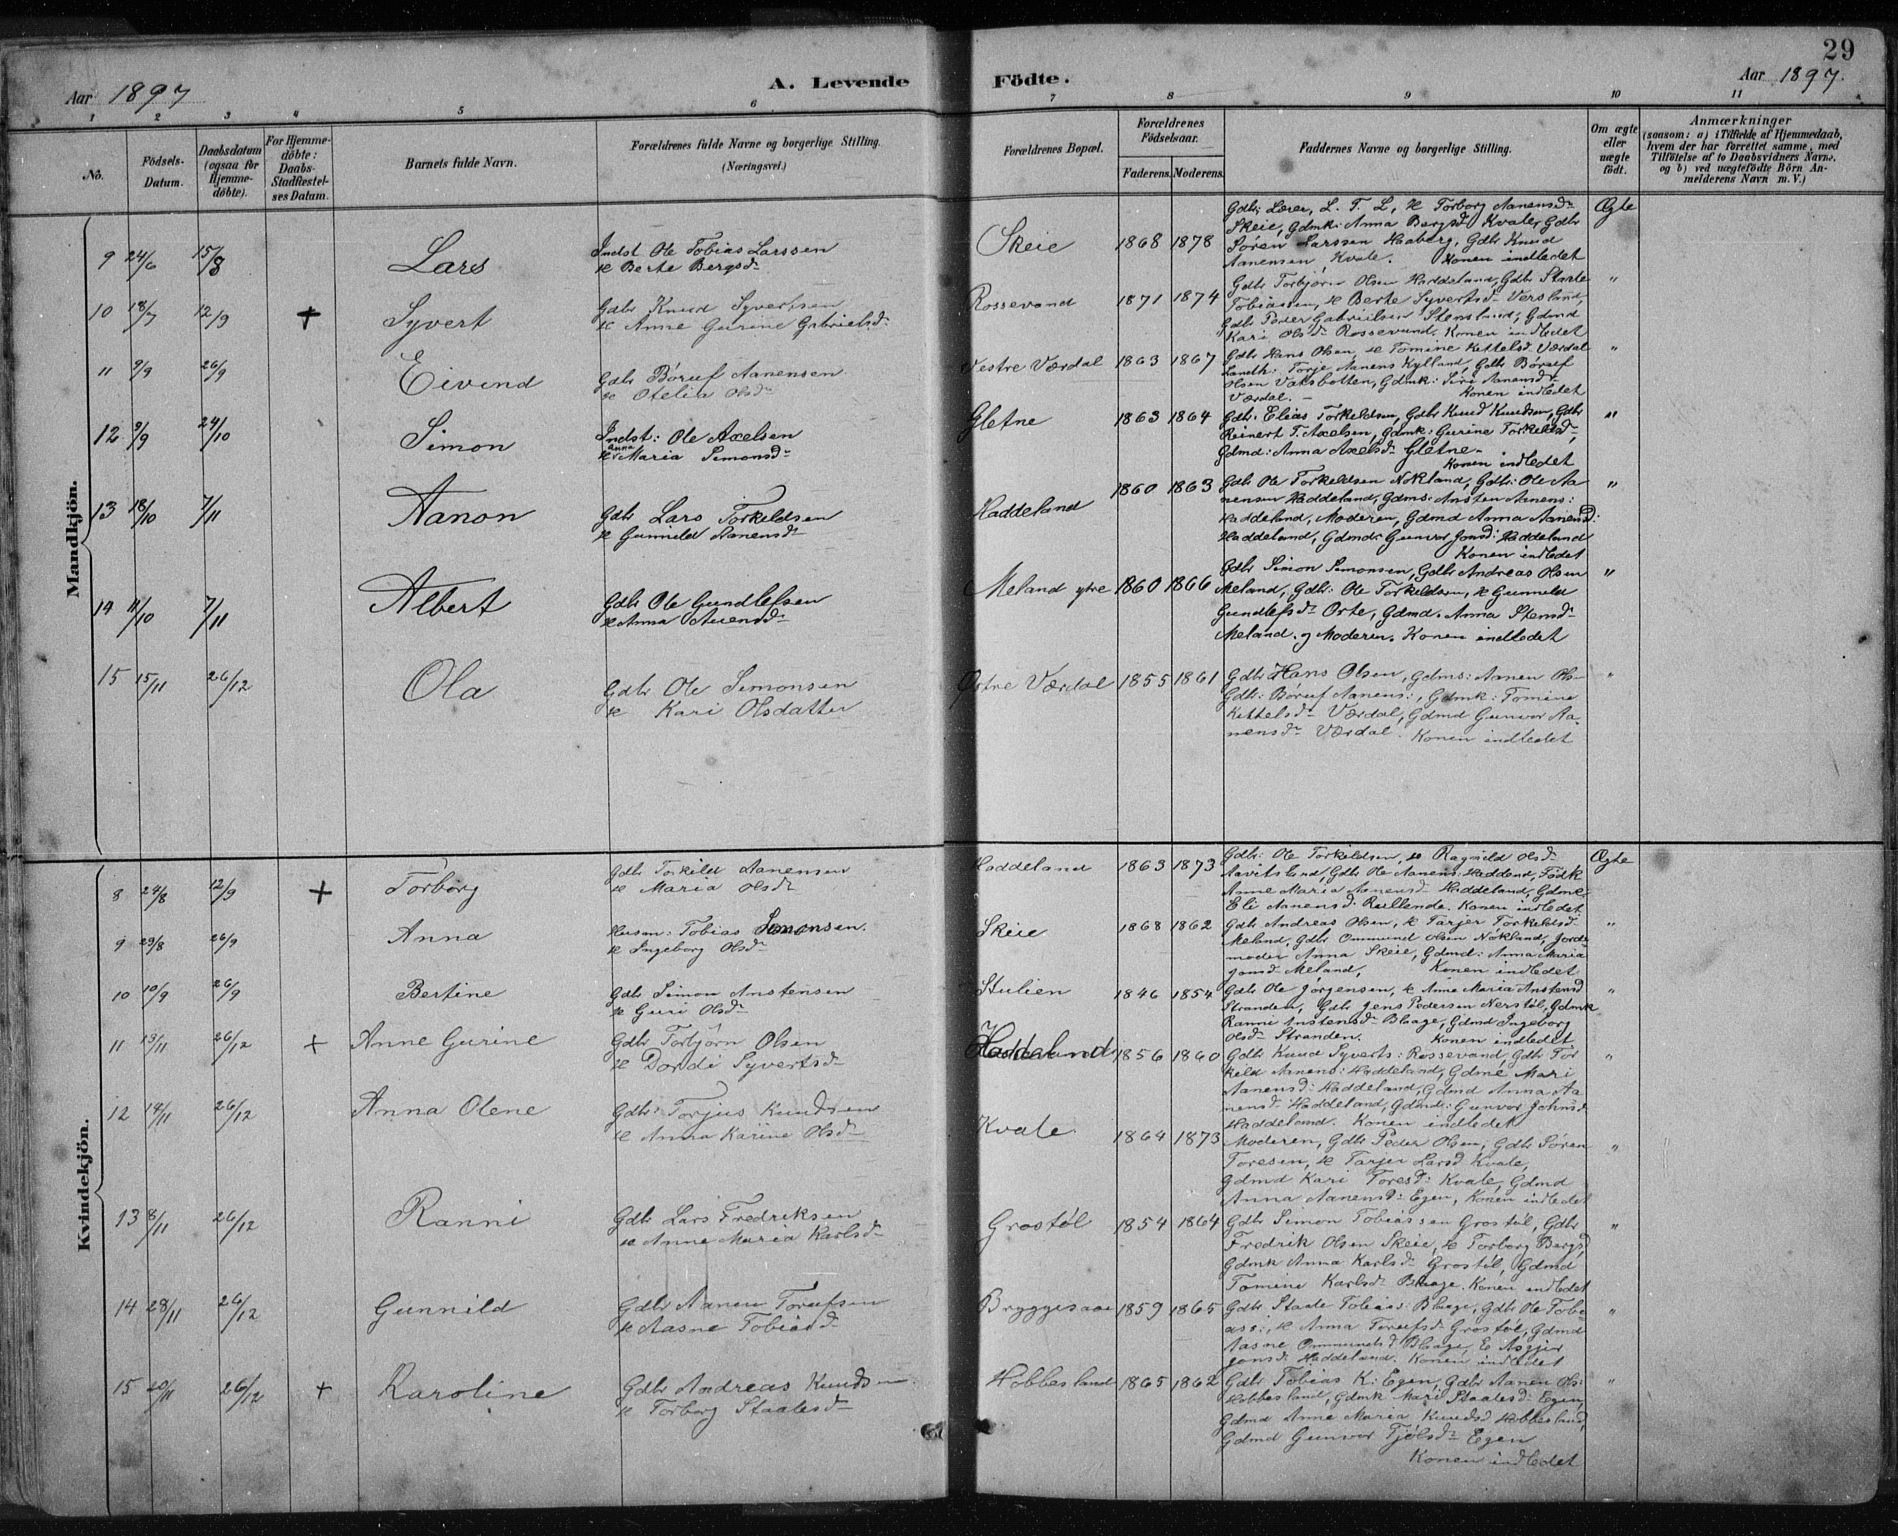 29
Aar 1897
A. Levende Födte.
Aar 1897.
1 2 3 4 5 6 7 8 9 10 11
No.
Födsels-Datum.
Daabsdatum (ogsaa for Hjemme-döbte).
For Hjemme-döbte: Daabs-Stadfæstel-ses Datum.
Barnets fulde Navn.
Forældrenes fulde Navne og borgerlige Stilling. (Næringsvei.)
Forældrenes Bopæl.
Forældrenes Födselsaar.
Faderens. Moderens.
Faddernes Navne og borgerlige Stilling.
Om ægte eller uægte födt.
Anmærkninger
(saasom: a) i Tilfælde af Hjemmedaab, hvem der har forrettet samme, med Tilföielse af to Daabsvidners Navne, og b) ved uægtefödte Börn An-melderens Navn m. V.)
Mandkjön.
9 24/6 15/8 Lars
Indst Ole Tobias Larssen
& Berte Bergsd.
Skeie 1868 1878
Gdbr: Lærer, L. T. L, & Torborg Aanensd.
Skeie, Gdmk: Anna Bergsd Kvale, Gdbr
Søren Larssen Haaberg, Gdbr Knud
Aanensen Kvale. Konen indledet
Ægte
10 18/7 12/9 + Syvert
Gdbr Knud Syvertsen
& Anne Gurine Gabrielsd:
Rossevand 1871 1874
Gdbr Torbjørn Olsen Haddeland, Gdbr Staale
Tobiassen, & Berte Syvertsd. Versland,
Gdbr Peder Gabrielsen Stensland, Gdmd
Kari Olsd. Rossevand. Konen indledet
"
11 9/9 26/9 Eivend
Gdbr Børuf Aanensen
& Otelia Olsd.
Vestre Værdal 1863 1867
Gdbr Hans Olsen, & Tomine Kittelsd. Værdal
Landh: Torje Aanens Kylland, Gdbr Børuf
Olsen Vatsbotten, Gdmk: Siri Aanensd.
Værdal. - Konen indledet
"
12 9/9 24/10 Simon
Indst: Ole Axelsen
& Anna Maria Simonsd.
Gletne 1863 1864
Gdbr. Elias Torkeldsen, Gdbr Knud Knudsen, Gdbr
Reinert T. Axelsen, Gdmk: Gurine Torkeldsd.,
Gdmd: Anna Axelsd. Gletne.
Konen indledet
"
13 18/10 7/11 Aanon
Gdbr Lars Torkeldsen
& Gunnild Aanensd.
Haddeland 1860 1863
Gdbr Ole Torkeldsen Nökland, Gdbr: Ole Aa-
nensen Haddeland, Gdms: Ansten Aanens:
Haddeland, Moderen, Gdmd Anna Aanensd:
Haddeland, Gdmd: Gunvor Jonsd: Haddeland
Konen indledet
"
14 11/10 7/11 Albert
Gdbr Ole Gundlefsen
& Anna
Meland ytre 1860 1866
Gdbr Simon Simonsen, Gdbr Andreas Olsen
Meland, Gdbr: Ole Torkeldsen, & Gunnild
Gundlefsd. Orte, Gdmd. Anna Stensd.
Meland. og Moderen. Konen indledet
"
15 15/11 26/12 Ola
Gdbr Ole Simonsen
& Kari Olsdatter
Østre Værdal 1855 1861
Gdbr Hans Olsen, Gdms: Aanen Ols-
Gdbr: Børuf Aanens:, Gdmk: Tomine
Kittelsd. Værdal, Gdmd Gunvor Aa-
nensd. Værdal. Konen indledet
"
Kvindekjön.
8 24/8 12/9 + Torborg
Gdbr Torkild Aanensen
& Maria Olsd.
Haddeland 1863 1873
Gdbr: Ole Torkildsen, & Ragnild Olsd.
Aavitsland, Gdbr Ole Aanens. Haddeland,
Anne Maria Aanensd. Haddeland, Gdmk
Eli Aanensd. Konen indledet.
Ægte
9 23/8 26/9 Anna
Husm: Tobias Simonsen.
& Ingeborg Olsd.
Skeie 1868 1862
Gdbr Andreas Olsen, & Tarjer Torkeldsd.
Meland, Gdbr Ommund Olsen Nökland, Jorde-
moder Anna Skeie, Gdmd: Anna Maria
Jonsd. Meland, Konen indledet
"
10 10/9 26/9 Bertine
Gdbr Simon Anstensen
& Guri Olsd.
Stulien 1846 1854
Gdbr Ole Jørgensen, & Anne Maria Anstensd
Stranden, Gdbr Jens Pedersen Nerstöl, Gdmk
Ranni Anstensd. Blaage, Gdmd Ingeborg
Olsd. Stranden. Konen indledet
"
11 13/11 26/12 + Anne Gurine
Gdbr Torbjörn Olsen
& Dordi Syvertsd.
Haddeland 1856 1860
Gdbr Knud Syverts: Rossevand, Gdbr Tor
keld Aanens: Haddeland, Gdmk Mari
Aanensd: Haddeland, Gdmd Anna Aa-
nensd. Haddeland, Gdmd: Gunvor Johnsd
Haddeland. Konen indledet
"
12 14/11 26/12 Anna Olene
Gdbr Torjus Knudsen
& Anna Karine Olsd.
Kvale 1864 1873
Moderen, Gdbr Peder Olsen, Gdbr Søren
Toresen, & Tarjer Larsd Kvale,
Gdmd Kari Toresd: Kvale, Gdmd
Anna Aanensd: Egen, Konen indledet
"
13 8/11 26/12 Ranni
Gdbr Lars Fredriksen
& Anne Maria Karlsd.
Grostöl 1854 1864
Gdbr Simon Tobiassen Grostöl, Gdbr
Fredrik Olsen Skeie, & Torborg Bergsd,
Gdmk Anna Karlsd. Grostöl, Gdmd
Tomine Karlsd. Blaage. Konen indledet
"
14 28/11 26/12 Gunnild
Gdbr Aanen Torufsen
& Aasne Tobiasd.
Bryggesaae 1859 1865
Gdbr Staale Tobias: Blaage, Gdbr Ole Tobi-
ass:, & Anna Torufsd. Grostöl, Gdmd
Aasne Ommundsd Blaage, E Asgjer
Jonsd. Haddeland. Konen indledet
"
15 20/11 26/12 + Karoline
Gdbr Andreas Knudsen
& Torborg Staalesd.
Hobbesland 1865 1862
Gdbr Tobias K: Egen, Gdbr Aanen Ols:
Hobbesland, Gdmk Mari Staalesd: Egen,
Gdmd Anne Maria Knudsd Hobbesland,
Gdmd Gunvor Tjølsd. Egen
Konen indledet
"